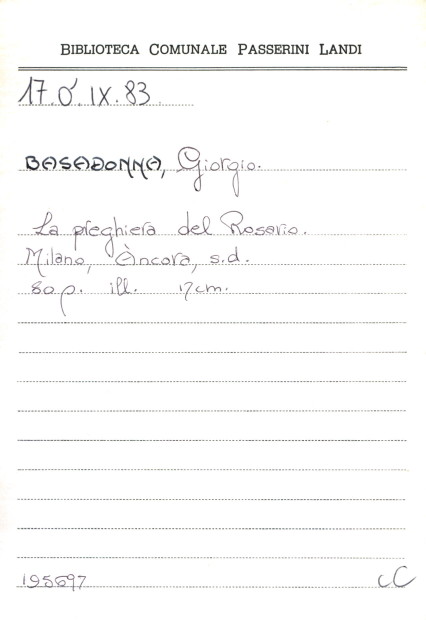 BIBLIOTECA COMUNALE PASSERINI LANDI
17.O'.IX.83
BASADONNA, Giorgio.
La preghiera del Rosario.
Milano, Àncora, s.d.
80 p. ill. 17cm.
195697
CC